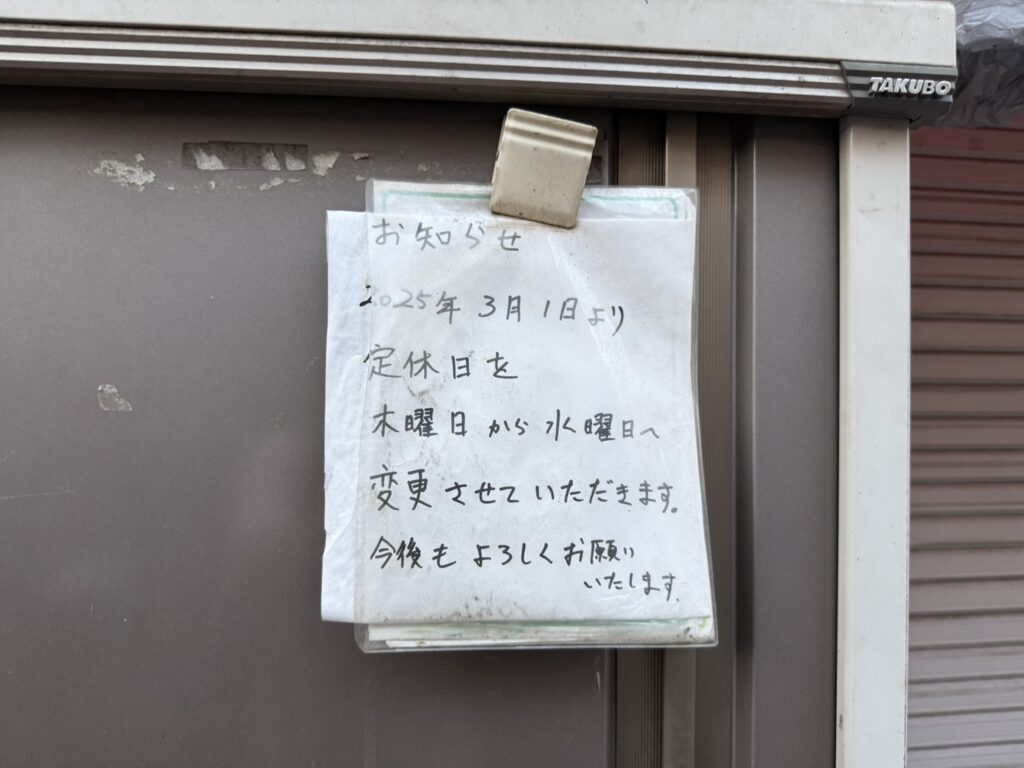 TAKUBO
お知らせ
2025年 3月 1日より
定休日を
木曜日から水曜日へ
変更させていただきます。
今後もよろしくお願い
いたします.